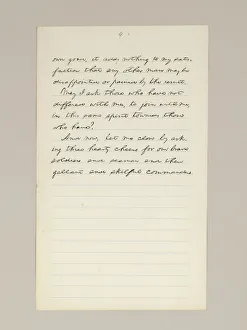 own given, it adds nothing to my satis-
faction that any other man may be
disappointed or pained by the result.
May I ask those who have not
differed with me, to join with me,
in this same spirit towards those
who have?
And now, let me close by ask-
ing three hearty cheers for our brave
soldiers and seamen and their
gallant and skilful commanders.